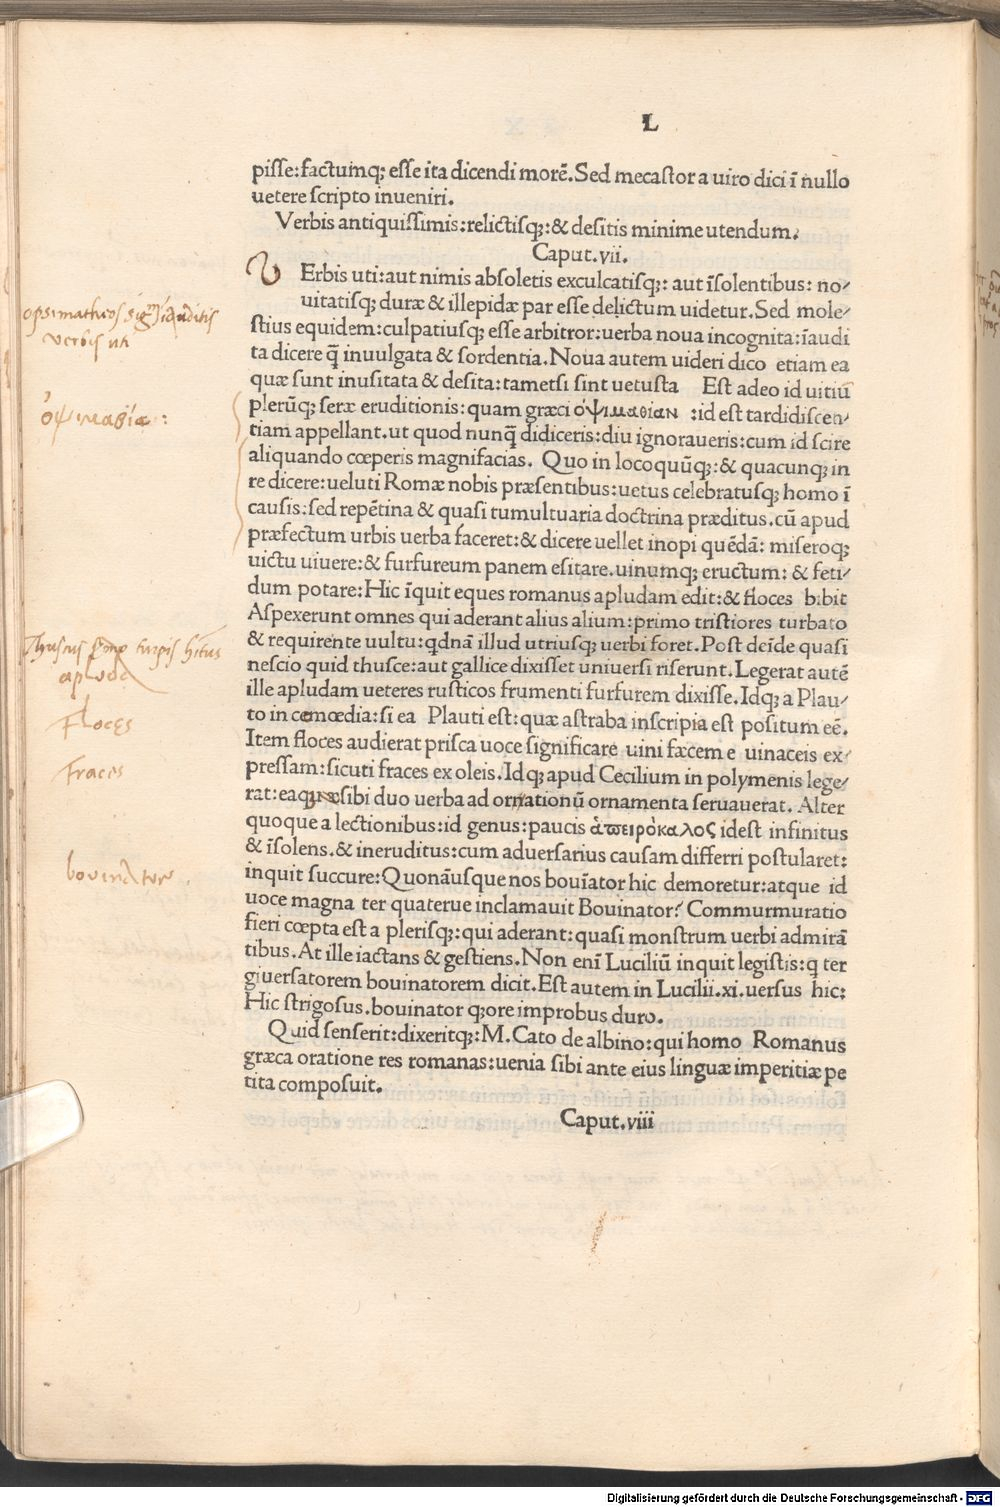 L
pisse:factumq; esse ita dicendi morē. Sed mecastor a uiro dici ī nullo
uetere scripto inueniri.
Verbis antiquissimis:relictisq;:& desitis minime utendum.
Caput.vii.
V Erbis uti:aut nimis absoletis exculcatisq;: aut īsolentibus: no/
uitatisq; duræ & illepidæ par esse delictum uidetur. Sed mole/
stius equidem:culpatiusq; esse arbitror:uerba noua incognita:īaudi
ta dicere q̄ inuulgata & sordentia. Noua autem uideri dico etiam ea
quæ sunt inusitata & desita:tametsi sint uetusta Est adeo id uitiū
plerūq; seræ eruditionis: quam græci ὀψιμαθίαν :id est tardidiscen/
tiam appellant.ut quod nunq̄ didiceris:diu ignoraueris:cum id scire
aliquando cœperis magnifacias. Quo in loco quūq;:& quacunq; in
re dicere:ueluti Romæ nobis præsentibus:uetus celebratusq; homo ī
causis:sed repētina & quasi tumultuaria doctrina præditus.cū apud
præfectum urbis uerba faceret:& dicere uellet inopi quēdā: miseroq;
uictu uiuere:& furfureum panem esitare.uinumq; eructum: & feti/
dum potare:Hic īquit eques romanus apludam edit:& floces bibit
Aspexerunt omnes qui aderant alius alium:primo tristiores turbato
& requirente uultu:qdnā illud utriusq; uerbi foret.Post deīde quasi
nescio quid thusce:aut gallice dixisset uniuersi riserunt.Legerat autē
ille apludam ueteres rusticos frumenti furfurem dixisse.Idq; a Plau/
to in comœdia:si ea Plauti est:quæ astraba inscripia est positum eē.
Item floces audierat prisca uoce significare uini fæcem e uinaceis ex/
pressam:sicuti fraces ex oleis.Idq; apud Cecilium in polymenis lege/
rat:eaquæ sibi duo uerba ad ornationū ornamenta seruauerat. Alter
quoque a lectionibus:id genus:paucis ἀπειρόκαλος idest infinitus
& īsolens.& ineruditus:cum aduersarius causam differri postularet:
inquit succure:Quonāusque nos bouīator hic demoretur:atque id
uoce magna ter quaterue inclamauit Bouinator? Commurmuratio
fieri cœpta est a plerisq;:qui aderant:quasi monstrum uerbi admirā
tibus.At ille iactans & gestiens.Non enī Luciliū inquit legistis:q ter
giuersatorem bouinatorem dicit.Est autem in Lucilii.xi.uersus hic:
Hic strigosus.bouinator q;ore improbus duro.
Quid senserit:dixeritq;:M.Cato de albino:qui homo Romanus
græca oratione res romanas:uenia sibi ante eius linguæ imperitiæ pe
tita composuit.
Caput.viii
verbis uti
ὀψιμαθία :
apluda
Floces
Fraces
bovinator
Digitalisierung gefördert durch die Deutsche Forschungsgemeinschaft - DFG